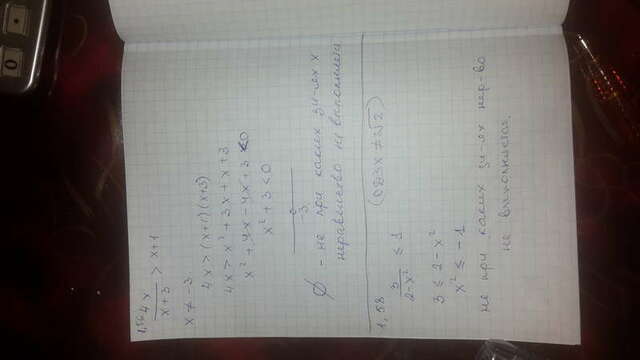 1,56 4x / x+3 > x+1
x ≠ -3
4x > (x+1)(x+3)
4x > x² + 3x + x + 3
x² + 4x - 4x + 3 < 0
x² + 3 < 0
-3
∅ - не при каких зн-иях x
неравенство не выполняется
1,58 (ОДЗ x ≠ √2)
3 / 2-x² ≤ 1
3 ≤ 2 - x²
x² ≤ -1
не при каких зн-ях нер-во
не выполняется.
0